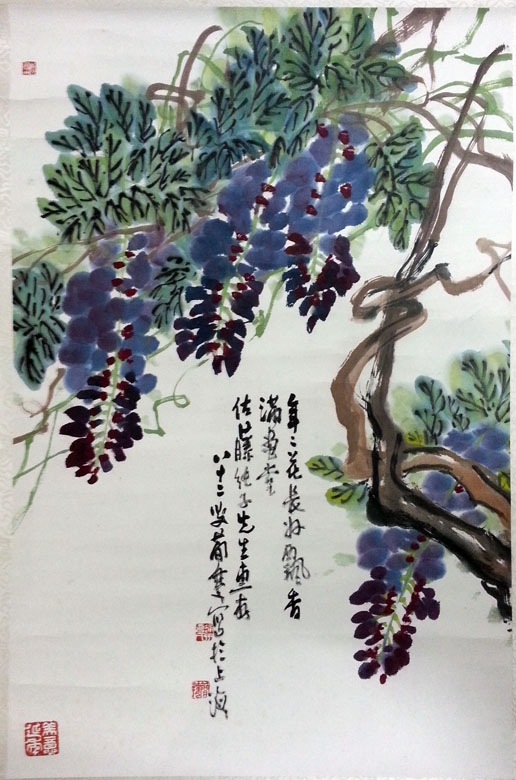 年二花長好飄香
滿畫堂
佐藤純子先生惠存
八十二叟
寫於上海
延年